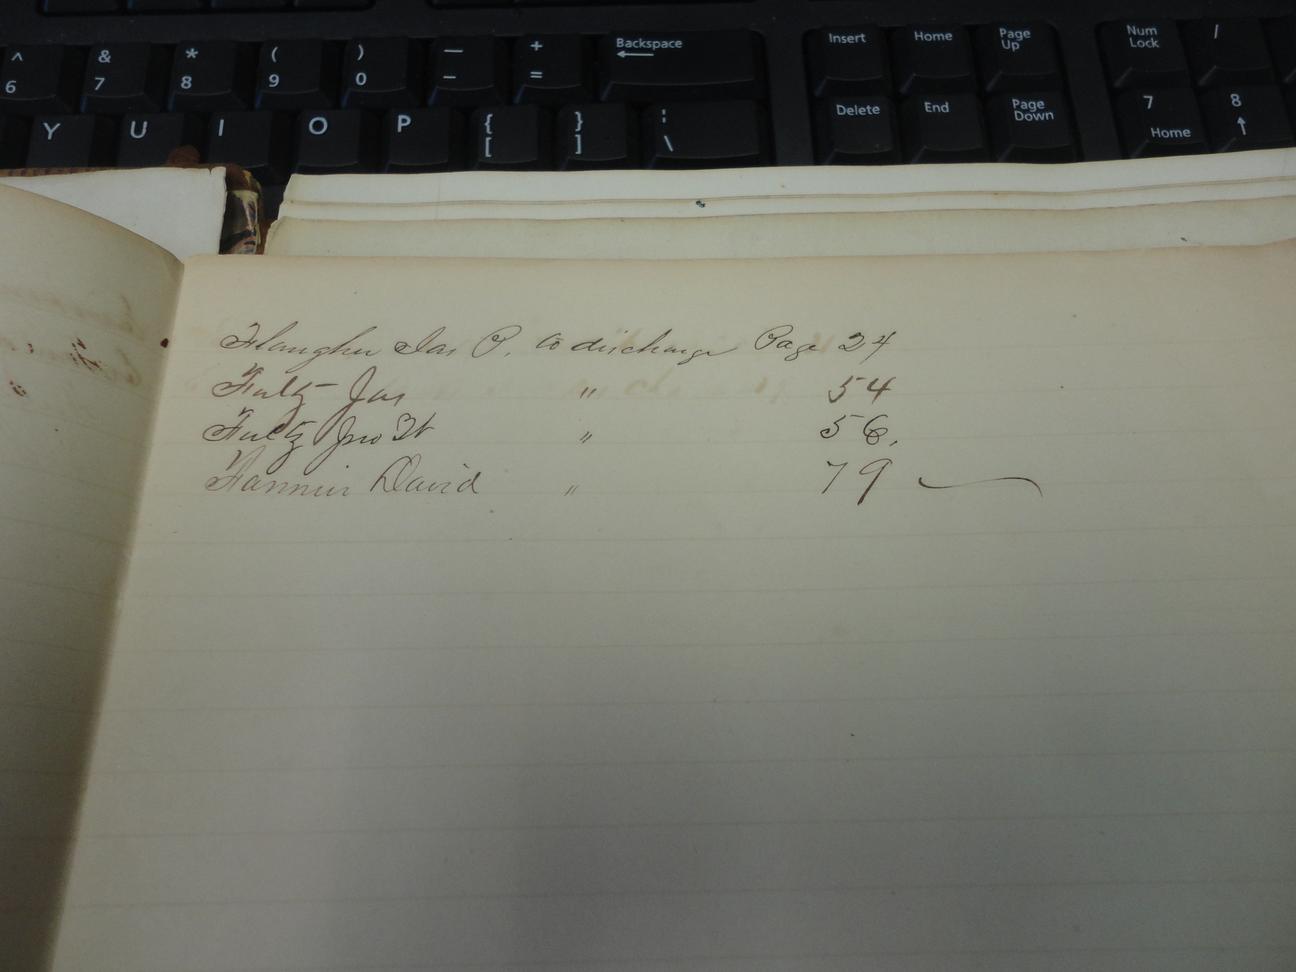 ^ & * ( ) — + Backspace Insert Home Page Up Num Lock /
6 7 8 9 0 - =
Y U I O P { [ } ] ¦ \ Delete End Page Down 7 Home 8
Flaugher Jas P. to discharge Page 24
Fultz Jas " 54
Fultz Jno W " 56.
Fannin David " 79